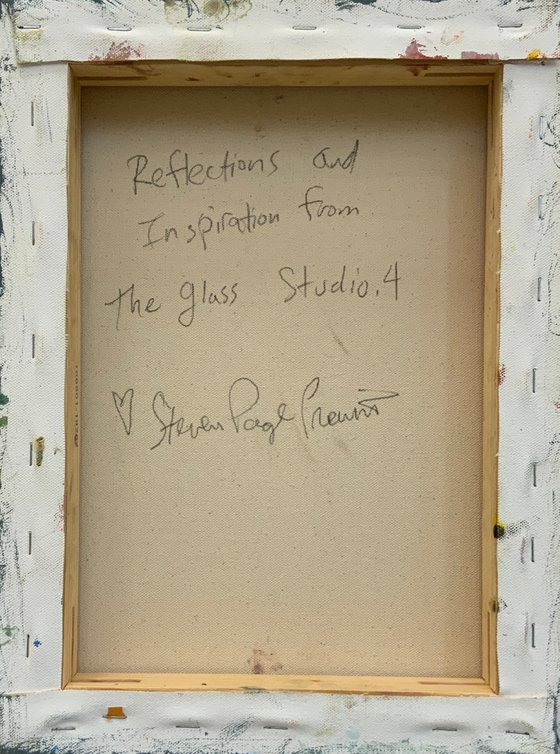 Reflections and
Inspiration from
the glass Studio.4
♡ Steven Page Prewitt